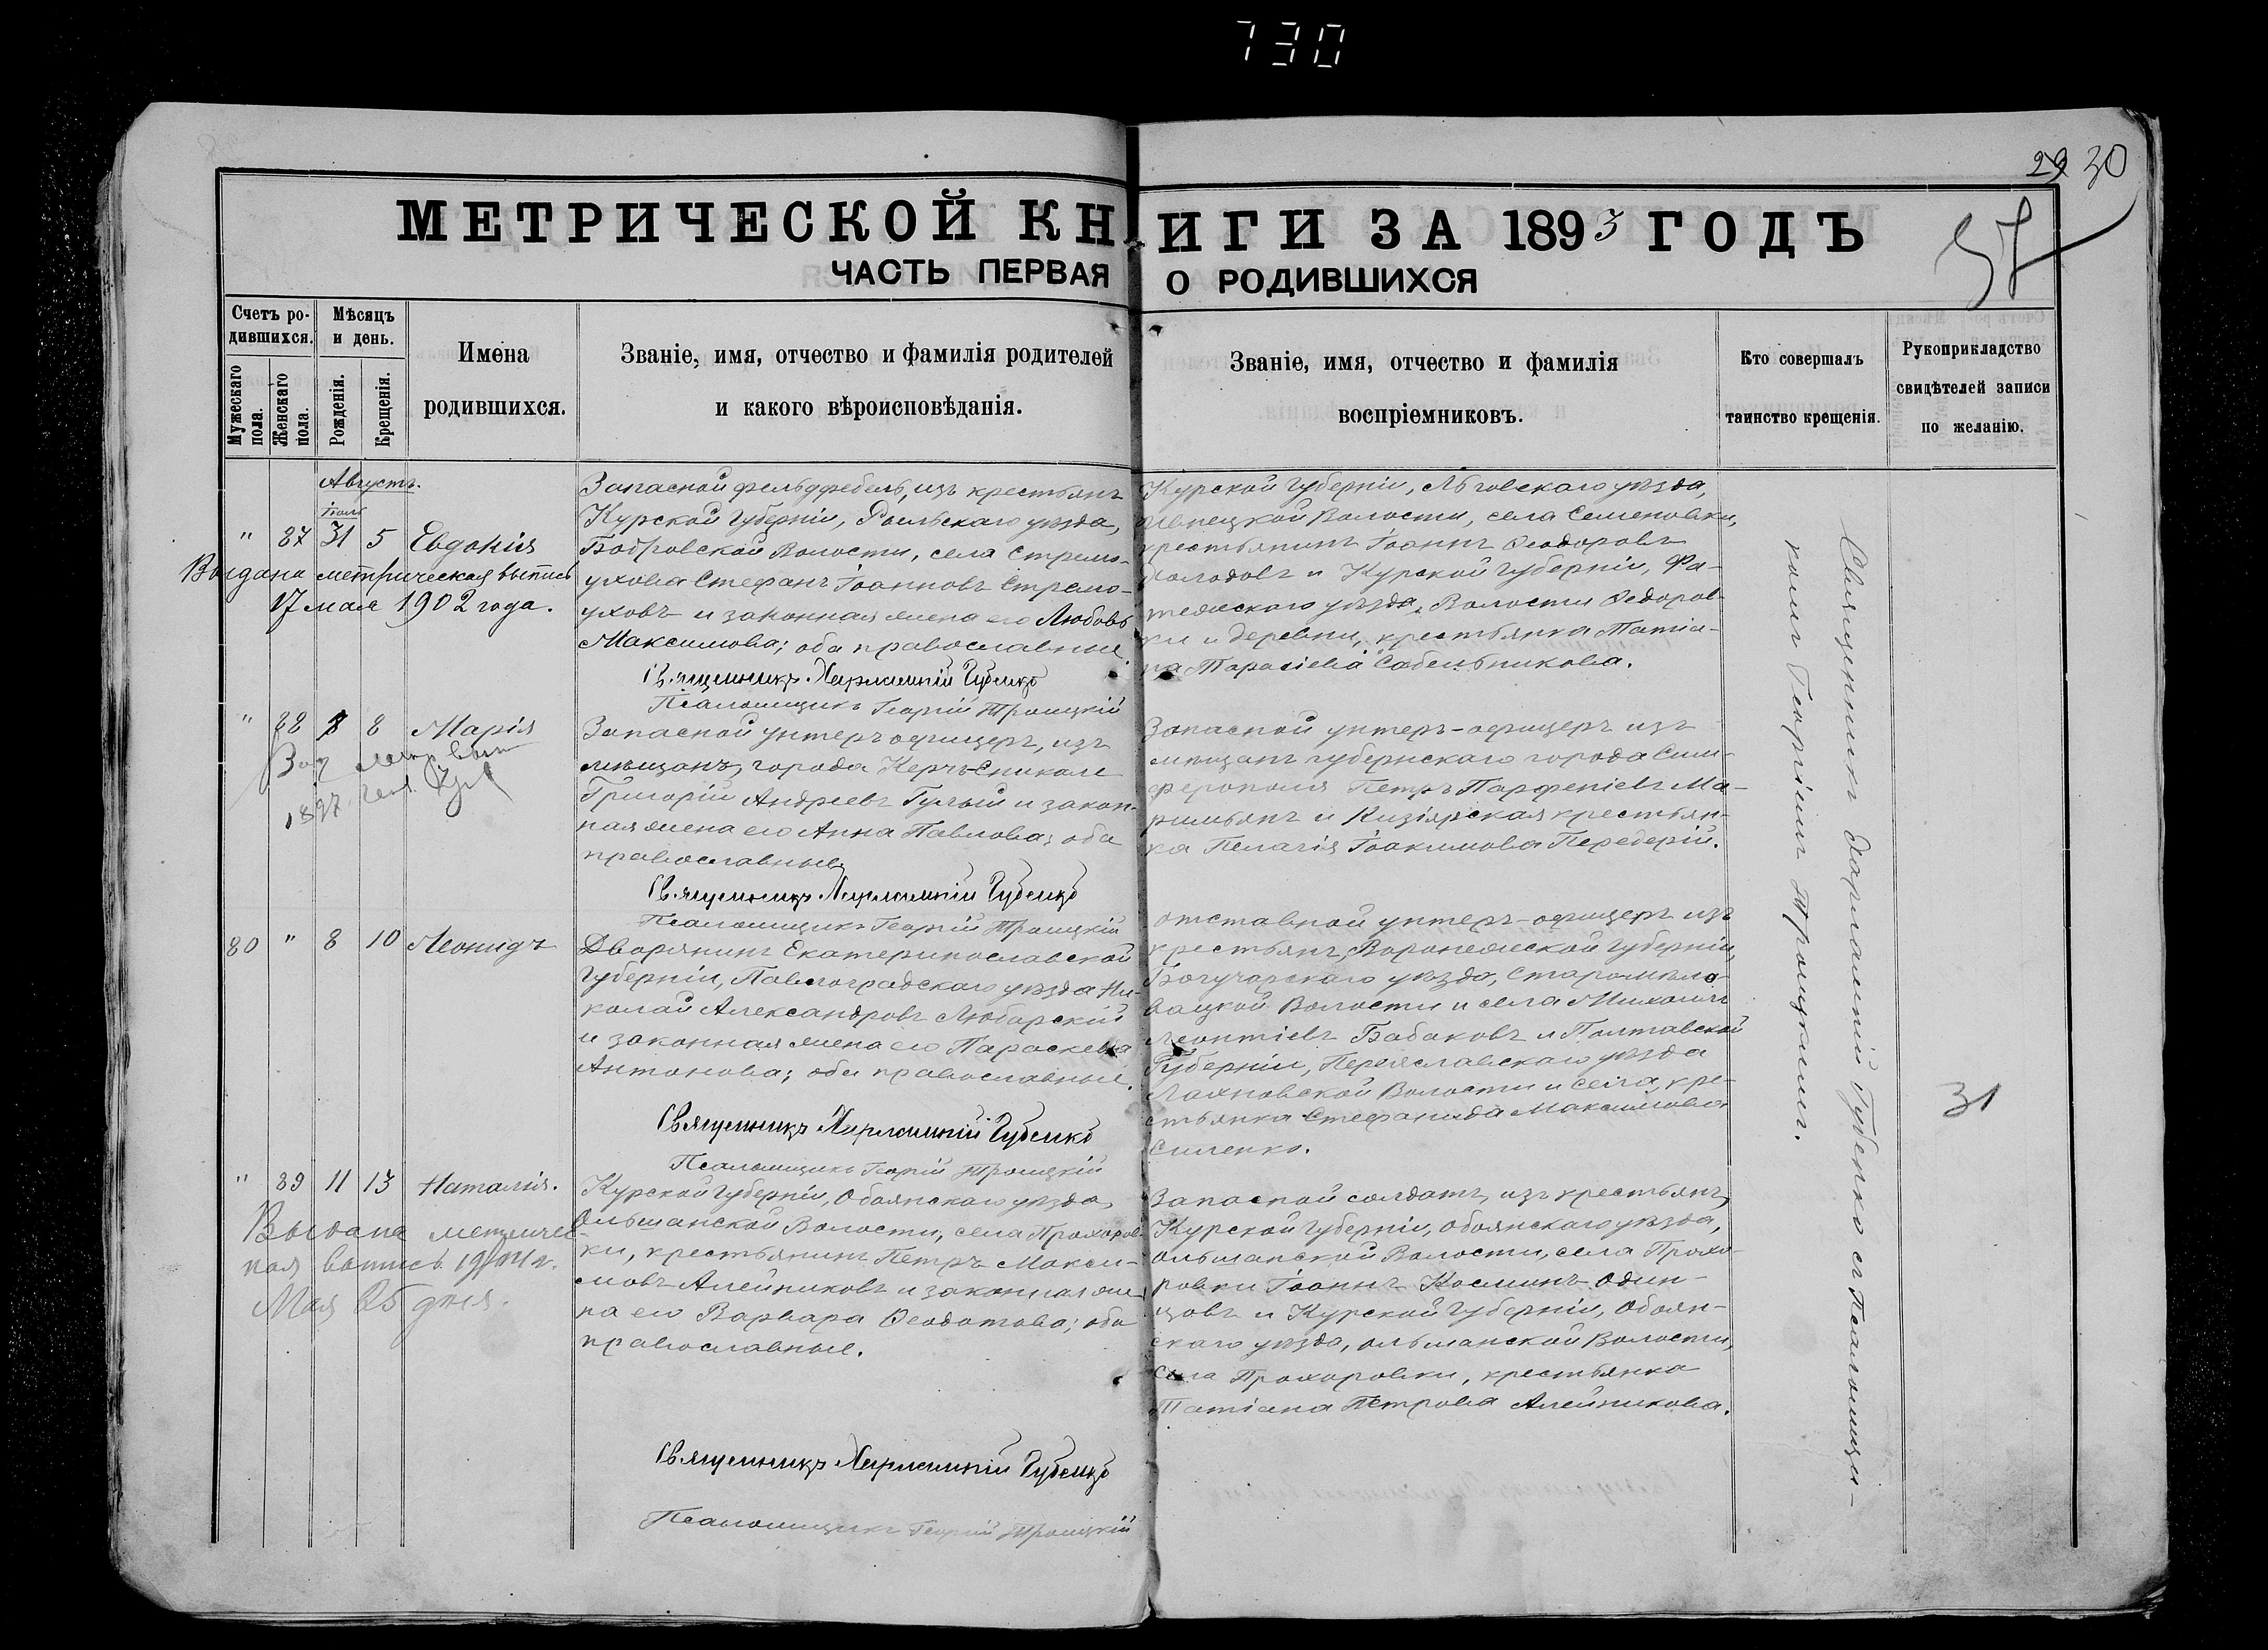 730
29 30
57
МЕТРИЧЕСКОЙ КНИГИ ЗА 1893 ГОДЪ
ЧАСТЬ ПЕРВАЯ О РОДИВШИХСЯ
Счетъ ро-
дившихся.
Мужескаго
пола.
Женскаго
пола.
Мѣсяцъ
и день.
Рожденія.
Крещенія.
Имена
родившихся.
Званіе, имя, отчество и фамилія родителей
и какого вѣроисповѣданія.
Званіе, имя, отчество и фамилія
воспріемниковъ.
Кто совершалъ
таинство крещенія.
Рукоприкладство
свидѣтелей записи
по желанію.
Августъ.
Іюль
" 87 31 5 Евдокія
Выдана метрическая выпись
17 мая 1902 года.
Запасной фельдфебель, изъ крестьянъ
Курской Губерніи, Рыльскаго уѣзда,
Бобровской Волости, села Стремо-
ухова Стефанъ Іоанновъ Стремо-
уховъ и законная жена его Любовь
Максимова; оба православные.
Священникъ Харлампій Губенко
Псаломщикъ Георгій Троицкій
Курской Губерніи, Льговскаго уѣзда,
Волости, села Семеновки,
крестьянинъ Іоаннъ Ѳеодоровъ
Холодовъ и Курской Губерніи, Фа-
тежскаго уѣзда, Волости Федоров-
ки и деревни, крестьянка Татіа-
на Тарасіева Сабельникова.
" 88 8 8 Марія
1897
Запасной унтеръ офицеръ, изъ
мѣщанъ, города Керчь-Еникале
Григорій Андреевъ Гулый и закон-
ная жена его Анна Павлова; оба
православные.
Священникъ Харлампій Губенко
Псаломщикъ Георгій Троицкій
Запасной унтеръ-офицеръ изъ
мѣщанъ губернскаго города Сим-
ферополя Петръ Парфеніевъ Ма-
римьянъ и Кизіярская крестьян-
ка Пелагія Іоакимова Передерій.
80 " 8 10 Леонидъ
Дворянинъ Екатеринославской
Губерніи, Павлоградскаго уѣзда Ни-
колай Александровъ Любарскій
и законная жена его Параскева
Антонова; оба православные.
Священникъ Харлампій Губенко
Псаломщикъ Георгій Троицкій
отставной унтеръ-офицеръ изъ
крестьянъ, Воронежской Губерніи,
Богучарскаго уѣзда, Старомѣло-
вацкой Волости и села Михаилъ
Леонтіевъ Бабаковъ и Полтавской
Губерніи, Переяславскаго уѣзда
Лехновской Волости и села, кре-
стьянка Стефанида Максимова
Силенко.
31
" 89 11 13 Наталія.
Выдана метричес-
кая выпись 1911 г.
Мая 25 дня.
Курской Губерніи, Обоянскаго уѣзда,
Ольшанской Волости, села Прохоров-
ки, крестьянинъ Петръ Макси-
мовъ Алейниковъ и законная же-
на его Варвара Ѳеодотова; оба
православные.
Священникъ Харлампій Губенко
Псаломщикъ Георгій Троицкій
Запасной солдатъ, изъ крестьянъ,
Курской Губерніи, Обоянскаго уѣзда,
Ольшанской Волости, села Прохо-
ровки Іоаннъ Косминъ Один-
цовъ и Курской Губерніи, Обоян-
скаго уѣзда, Ольшанской Волости,
села Прохоровки, крестьянка
Татіана Петрова Алейникова.
Священникъ Харлампій Губенко съ Псаломщи-
комъ Георгіемъ Троицкимъ.